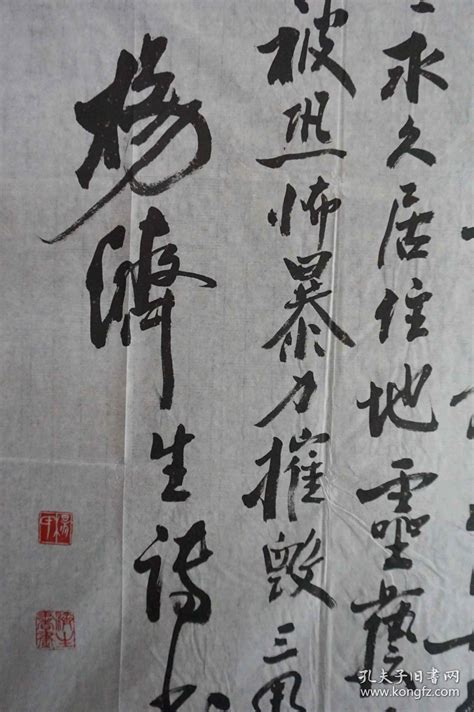 永久居住地靈藝
被恐怖暴力摧毀三
楊濟生詩書
孔夫子旧书网
www.kongfz.com